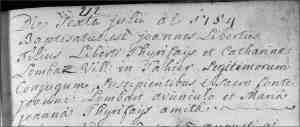 Die sexta julii
Baptisatus est joannes Libertus
filius Liberti Thyrifays et Catharina
Lombar in Fahier Legitimorum
Conjugum Suscipientibus e Sacro fonte
joanne Lombart avunculo et Maria
joanna Thyrifays amita